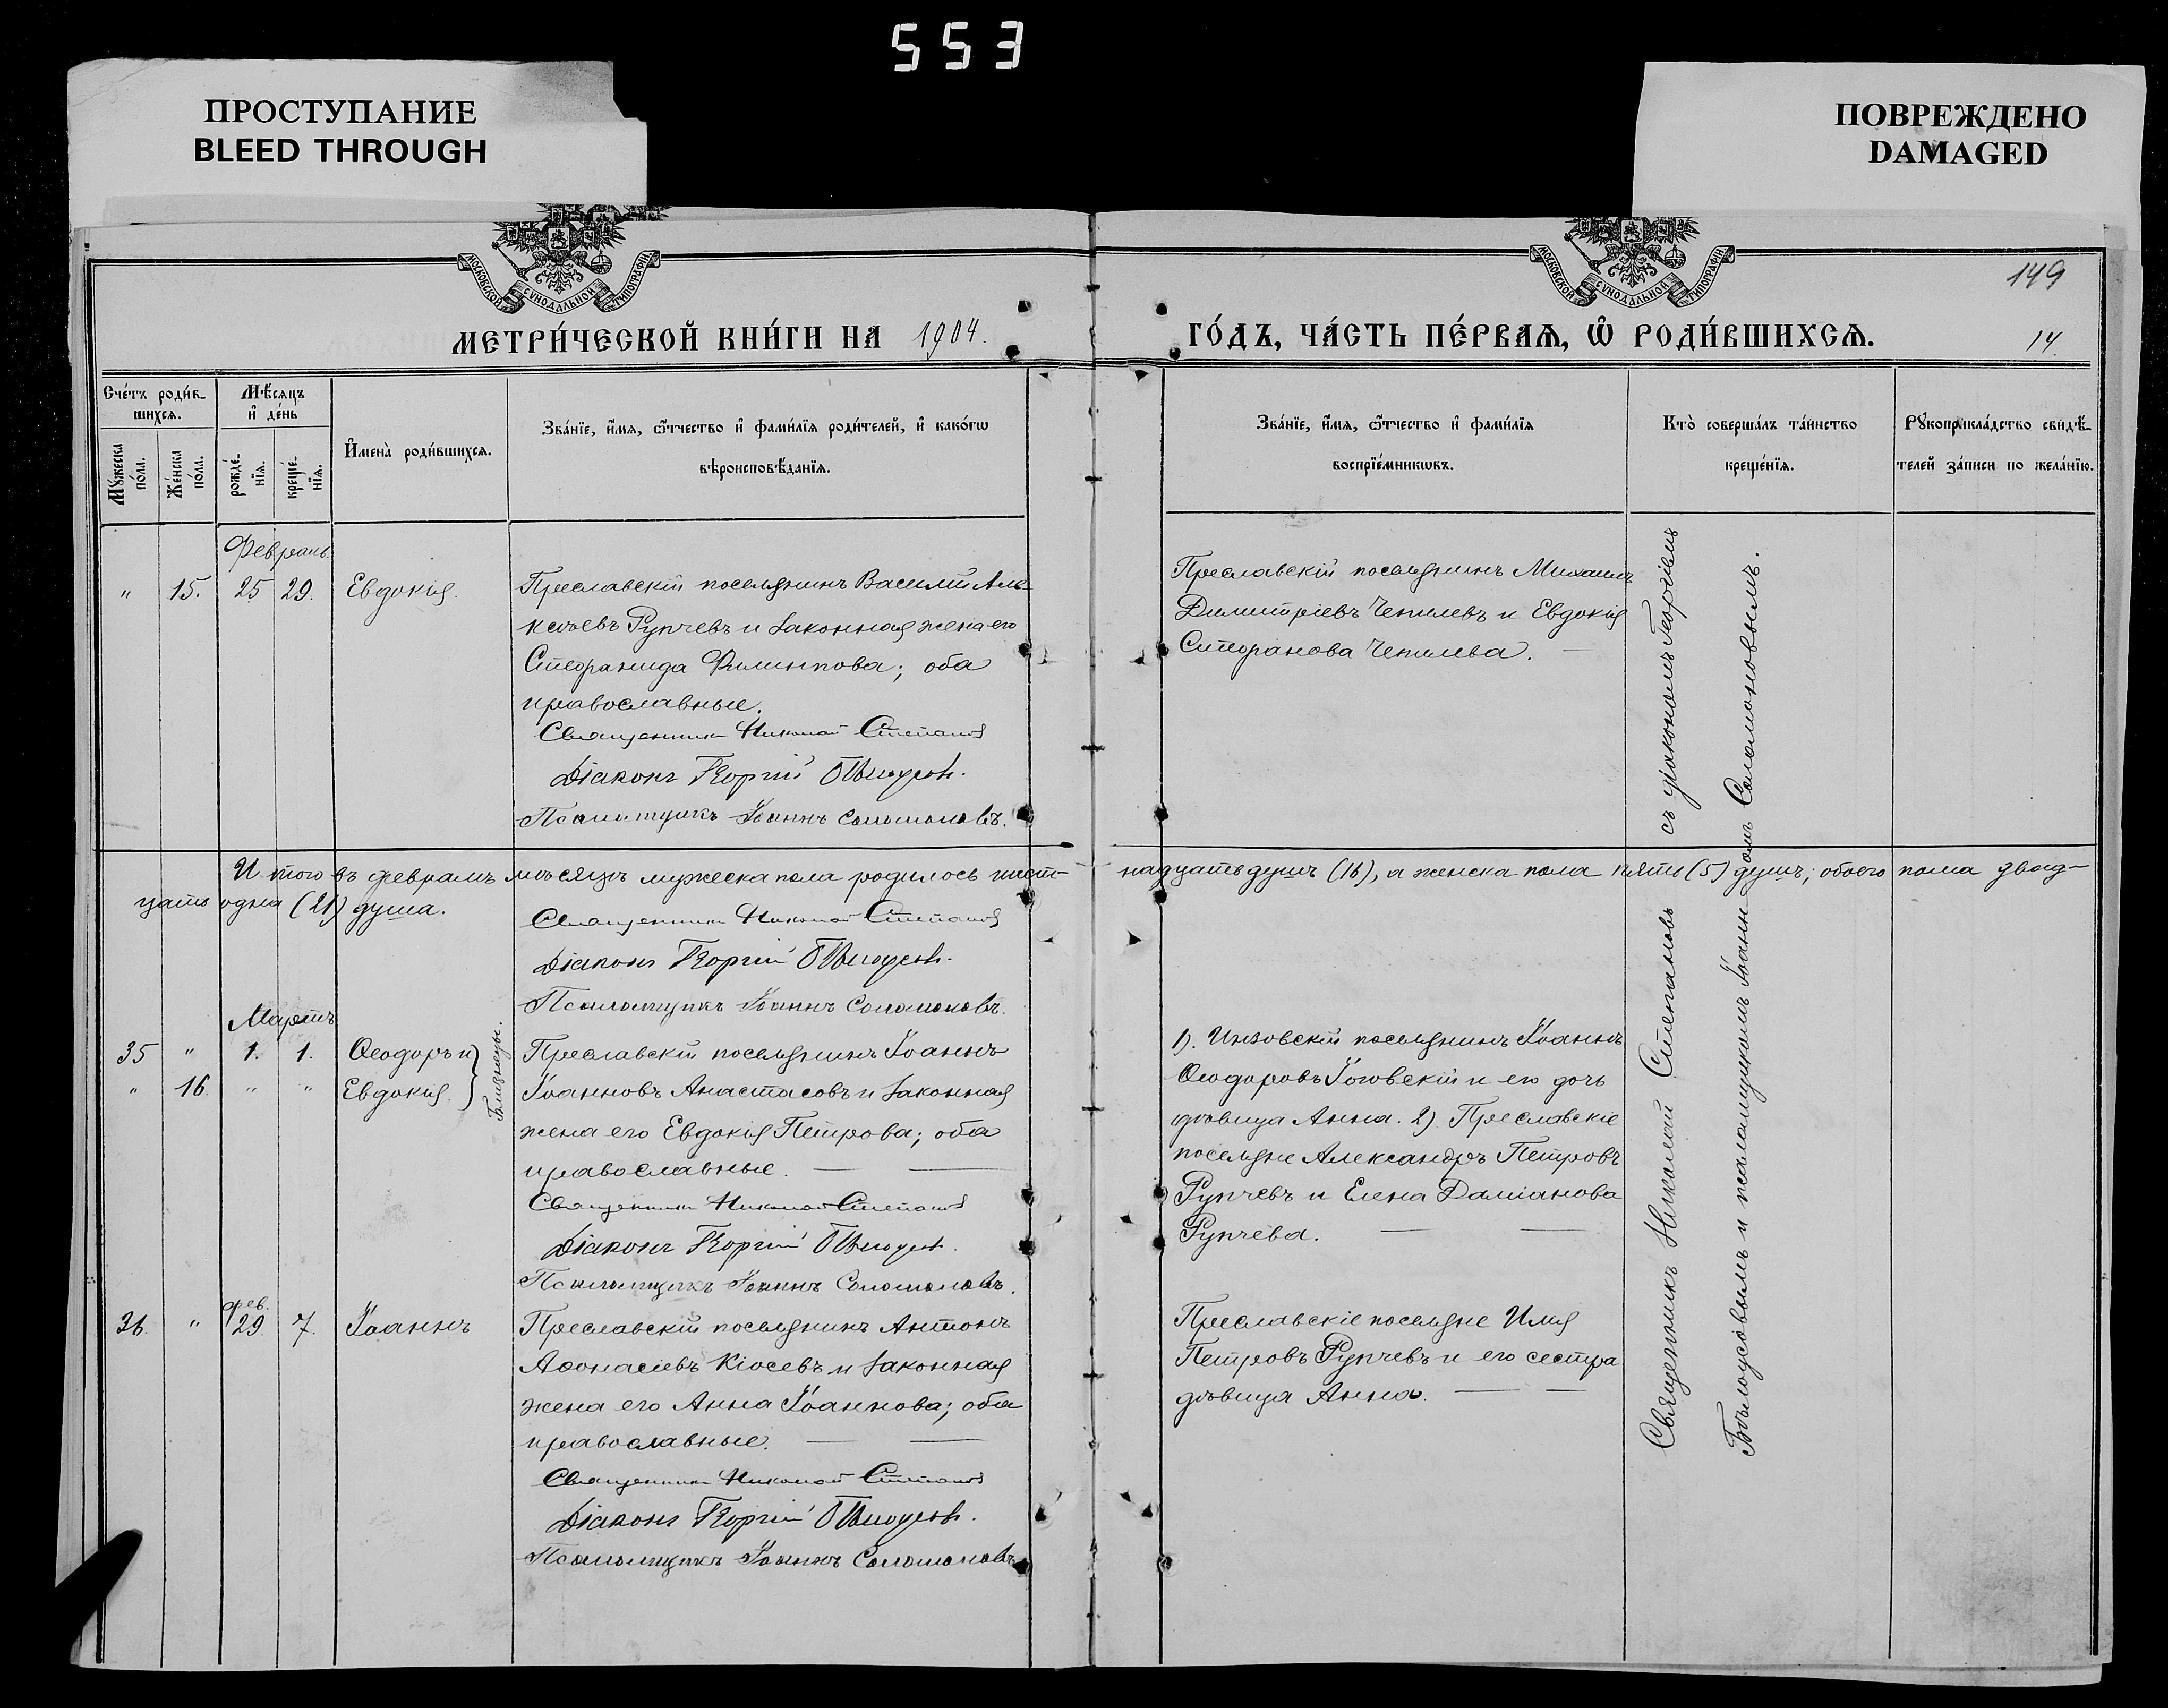 553
ПРОСТУПАНИЕ
BLEED THROUGH
ПОВРЕЖДЕНО
DAMAGED
МОСКОВСКОЙ СѴНОДАЛЬНОЙ ТИПОГРАФІИ
МОСКОВСКОЙ СѴНОДАЛЬНОЙ ТИПОГРАФІИ
149
МЕТРИ́ЧЕСКОЙ КНИ́ГИ НА 1904.
ГО́ДЪ, ЧА́СТЬ ПЕ́РВАѦ, Ѽ РОДИ́ВШИХСѦ.
14.
Сче́тъ роди́в-
шихсѧ.
Мѣ́сяцъ
и҆ де́нь
Мꙋ́жеска
по́ла.
Же́нска
по́ла.
рожде́-
нїѧ.
креще́-
нїѧ.
И҆мена̀ роди́вшихсѧ.
Зва́нїе, и҆́мѧ, ѻ҆́тчество и҆ фами́лїѧ роди́телей, и҆ како́гѡ
вѣроисповѣ́данїѧ.
Зва́нїе, и҆́мѧ, ѻ҆́тчество и҆ фами́лїѧ
воспрїе́мникѡвъ.
Кто̀ соверша́лъ та́инство
креще́нїѧ.
Рꙋкоприкла́дство свидѣ́-
телей за́писи по жела́нїю.
Февраль
" 15. 25 29. Евдокія.
Преславскій поселянинъ Василій Але-
ксѣевъ Рупчевъ и законная жена его
Стефанида Филиппова; оба
православные.
Священникъ Николай Степановъ
Діаконъ Георгій Бѣлоусовъ.
Псаломщикъ Іоаннъ Соломоновъ.
Преславскій поселянинъ Михаилъ
Димитріевъ Чепилевъ и Евдокія
Стефанова Чепилева.
Итого въ февралѣ мѣсяцѣ мужеска пола родилось шест-
надцать душъ (16), а женска пола пять (5) душъ; обоего пола двад-
цать одна (21) душа.
Священникъ Николай Степановъ
Діаконъ Георгій Бѣлоусовъ.
Псаломщикъ Іоаннъ Соломоновъ.
Мартъ
35 " 1. 1. Ѳеодоръ и
" 16. " " Евдокія.
Близнецы.
Преславскій поселянинъ Іоаннъ
Іоанновъ Анастасовъ и законная
жена его Евдокія Петрова; оба
православные.
Священникъ Николай Степановъ
Діаконъ Георгій Бѣлоусовъ.
Псаломщикъ Іоаннъ Соломоновъ.
1). Инзовскій поселянинъ Іоаннъ
Ѳеодоровъ Гоговскій и его дочь
дѣвица Анна. 2) Преславскіе
поселяне Александръ Петровъ
Рупчевъ и Елена Даміанова
Рупчева.
фев.
36. " 29 7. Іоаннъ
Преславскій поселянинъ Антонъ
Аѳонасіевъ Кіосевъ и законная
жена его Анна Іоаннова; оба
православные.
Священникъ Николай Степановъ
Діаконъ Георгій Бѣлоусовъ.
Псаломщикъ Іоаннъ Соломоновъ
Преславскіе поселяне Илія
Петровъ Рупчевъ и его сестра
дѣвица Анна.
Священникъ Николай Степановъ съ діакономъ Георгіемъ
Бѣлоусовымъ и псаломщикомъ Іоанномъ Соломоновымъ.